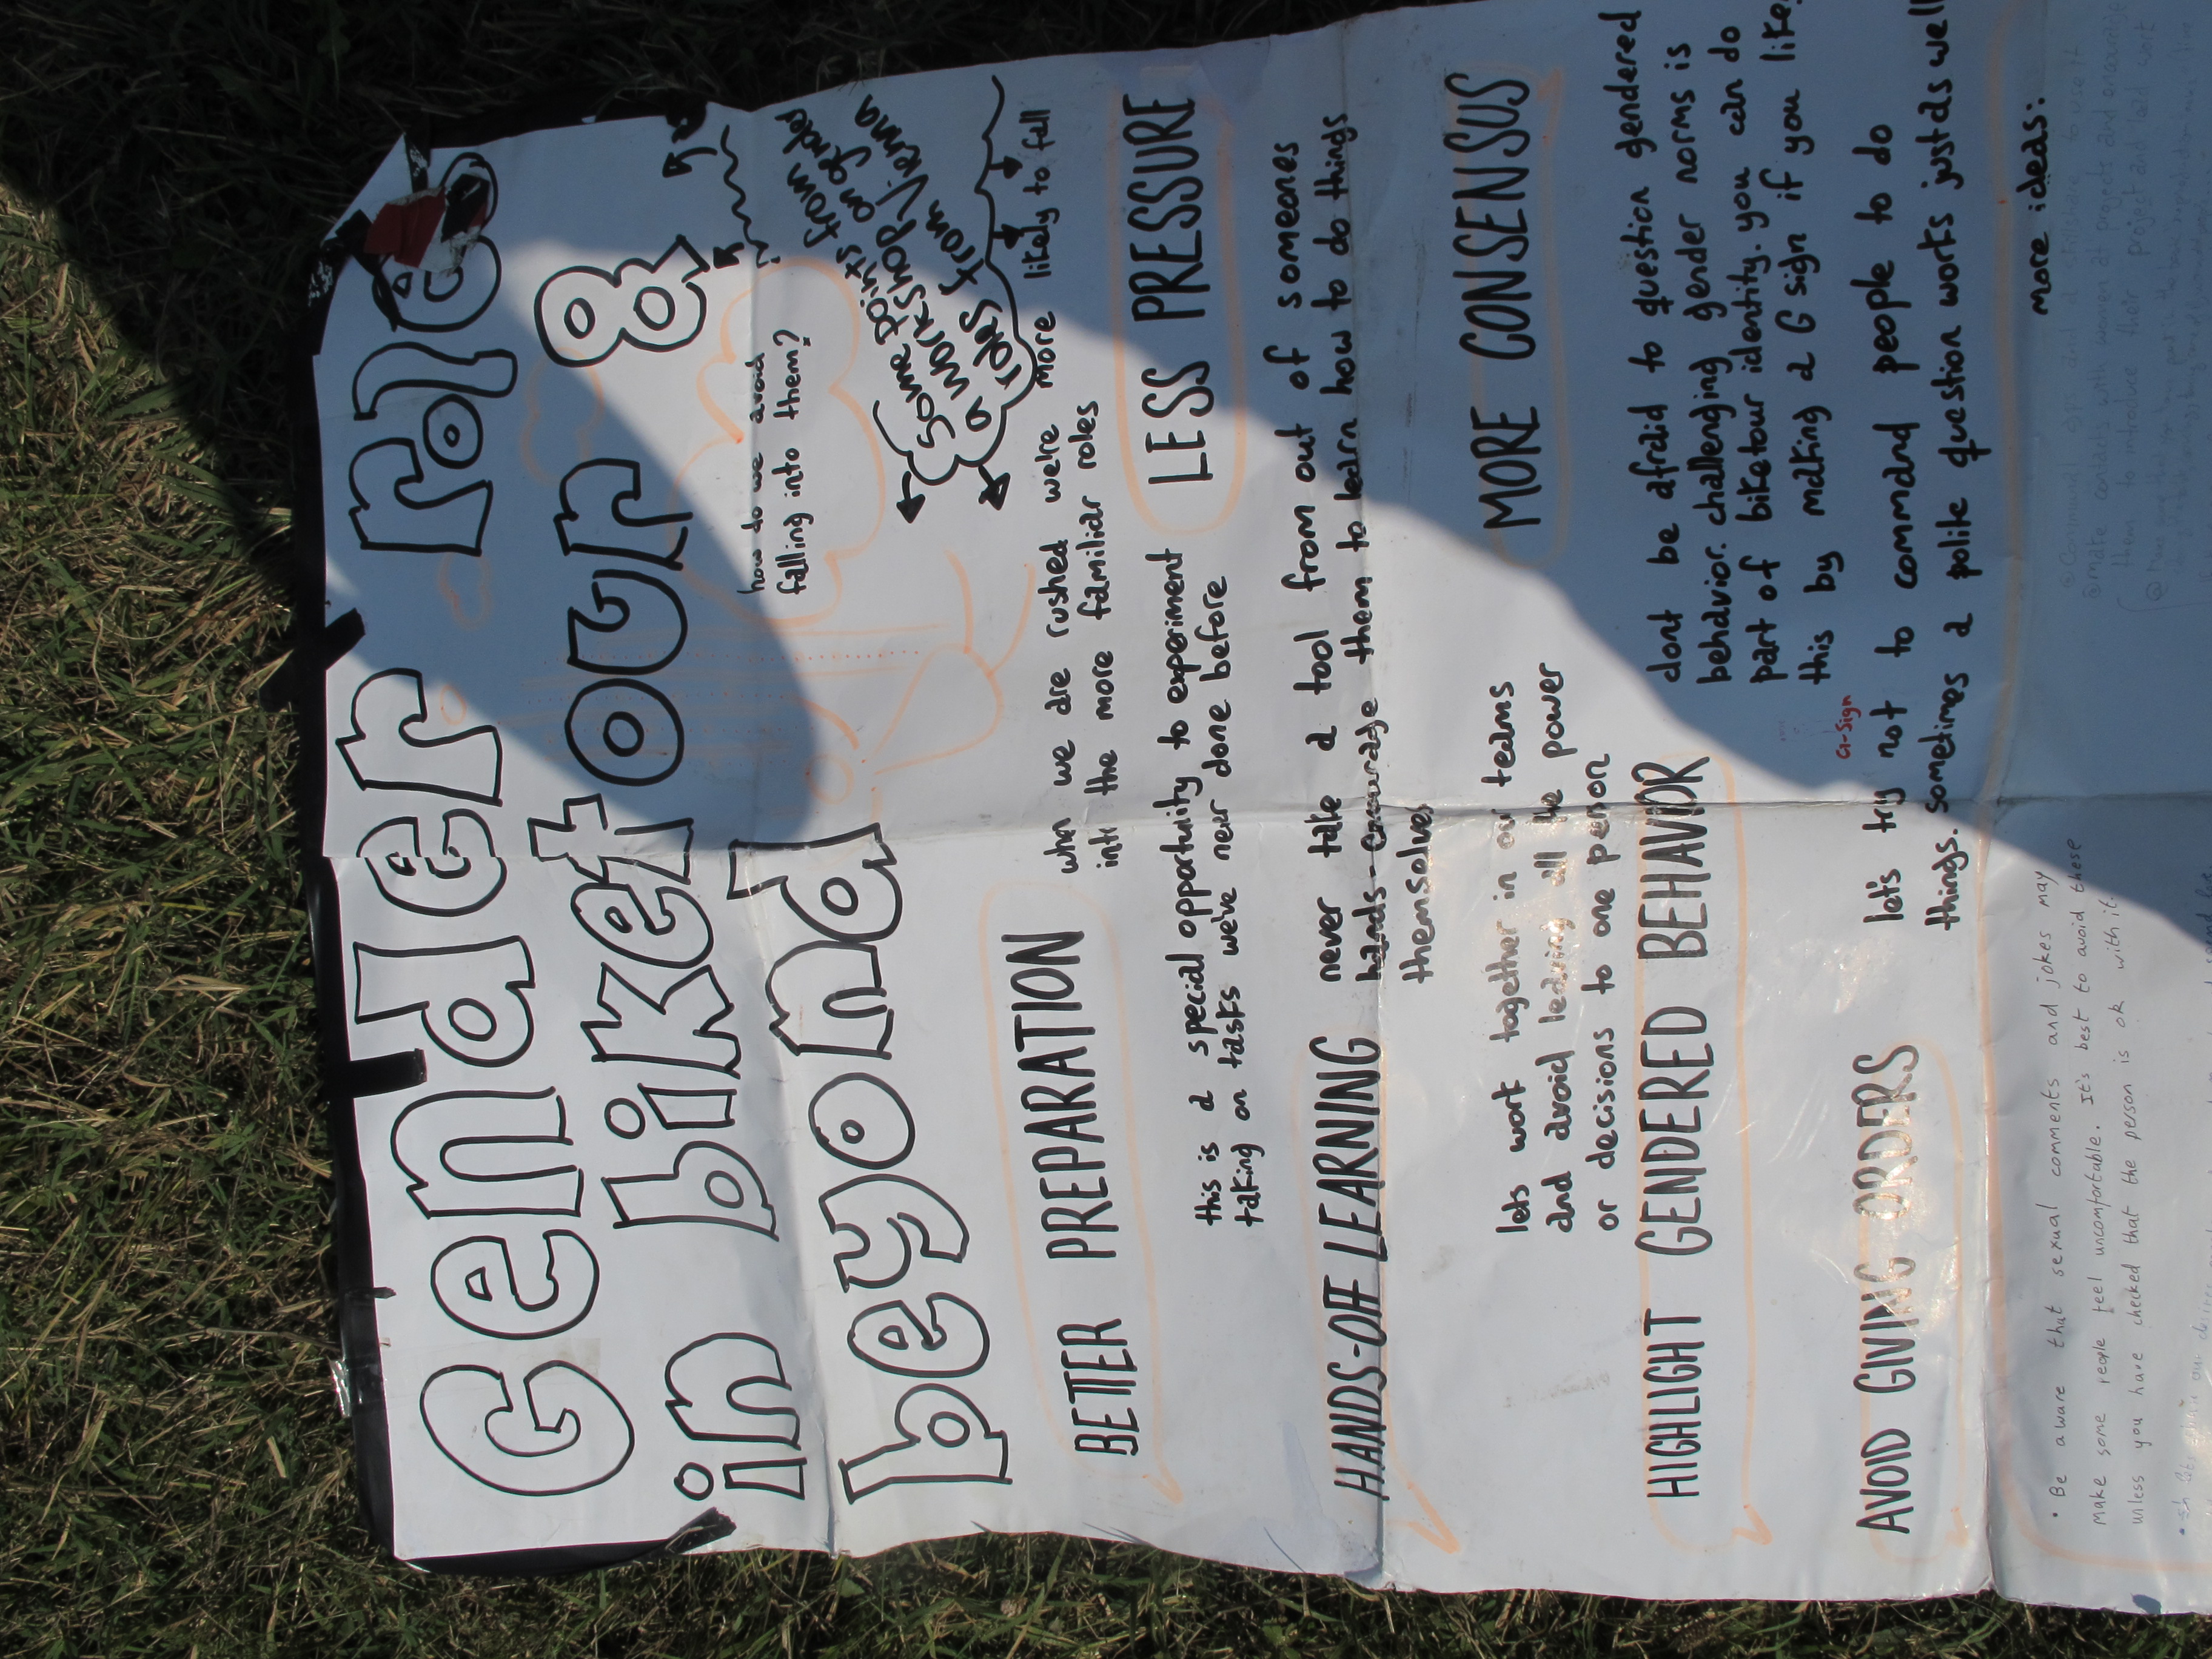 Gender role
in biketour &
beyond
how do we avoid
falling into them?
some points from
a workshop on gender
roles from Vienna
BETTER PREPARATION
when we are rushed we're more likely to fall
into the more familiar roles
LESS PRESSURE
this is a special opportunity to experiment
taking on tasks we've never done before
HANDS-OFF LEARNING
never take a tool from out of someones
hands-encourage them to learn how to do things
themselves
MORE CONSENSUS
lets work together in our teams
and avoid leaving all the power
or decisions to one person
HIGHLIGHT GENDERED BEHAVIOR
dont be afraid to question gendered
behavior. challenging gender norms is
part of biketour identity. you can do
this by making a G sign if you like.
G-Sign
AVOID GIVING ORDERS
let's try not to command people to do
things. sometimes a polite question works just as well
more ideas:
• Be aware that sexual comments and jokes may
make some people feel uncomfortable. It's best to avoid these
unless you have checked that the person is ok with it
@make contacts with women at projects and encourage
them to introduce their project and lead